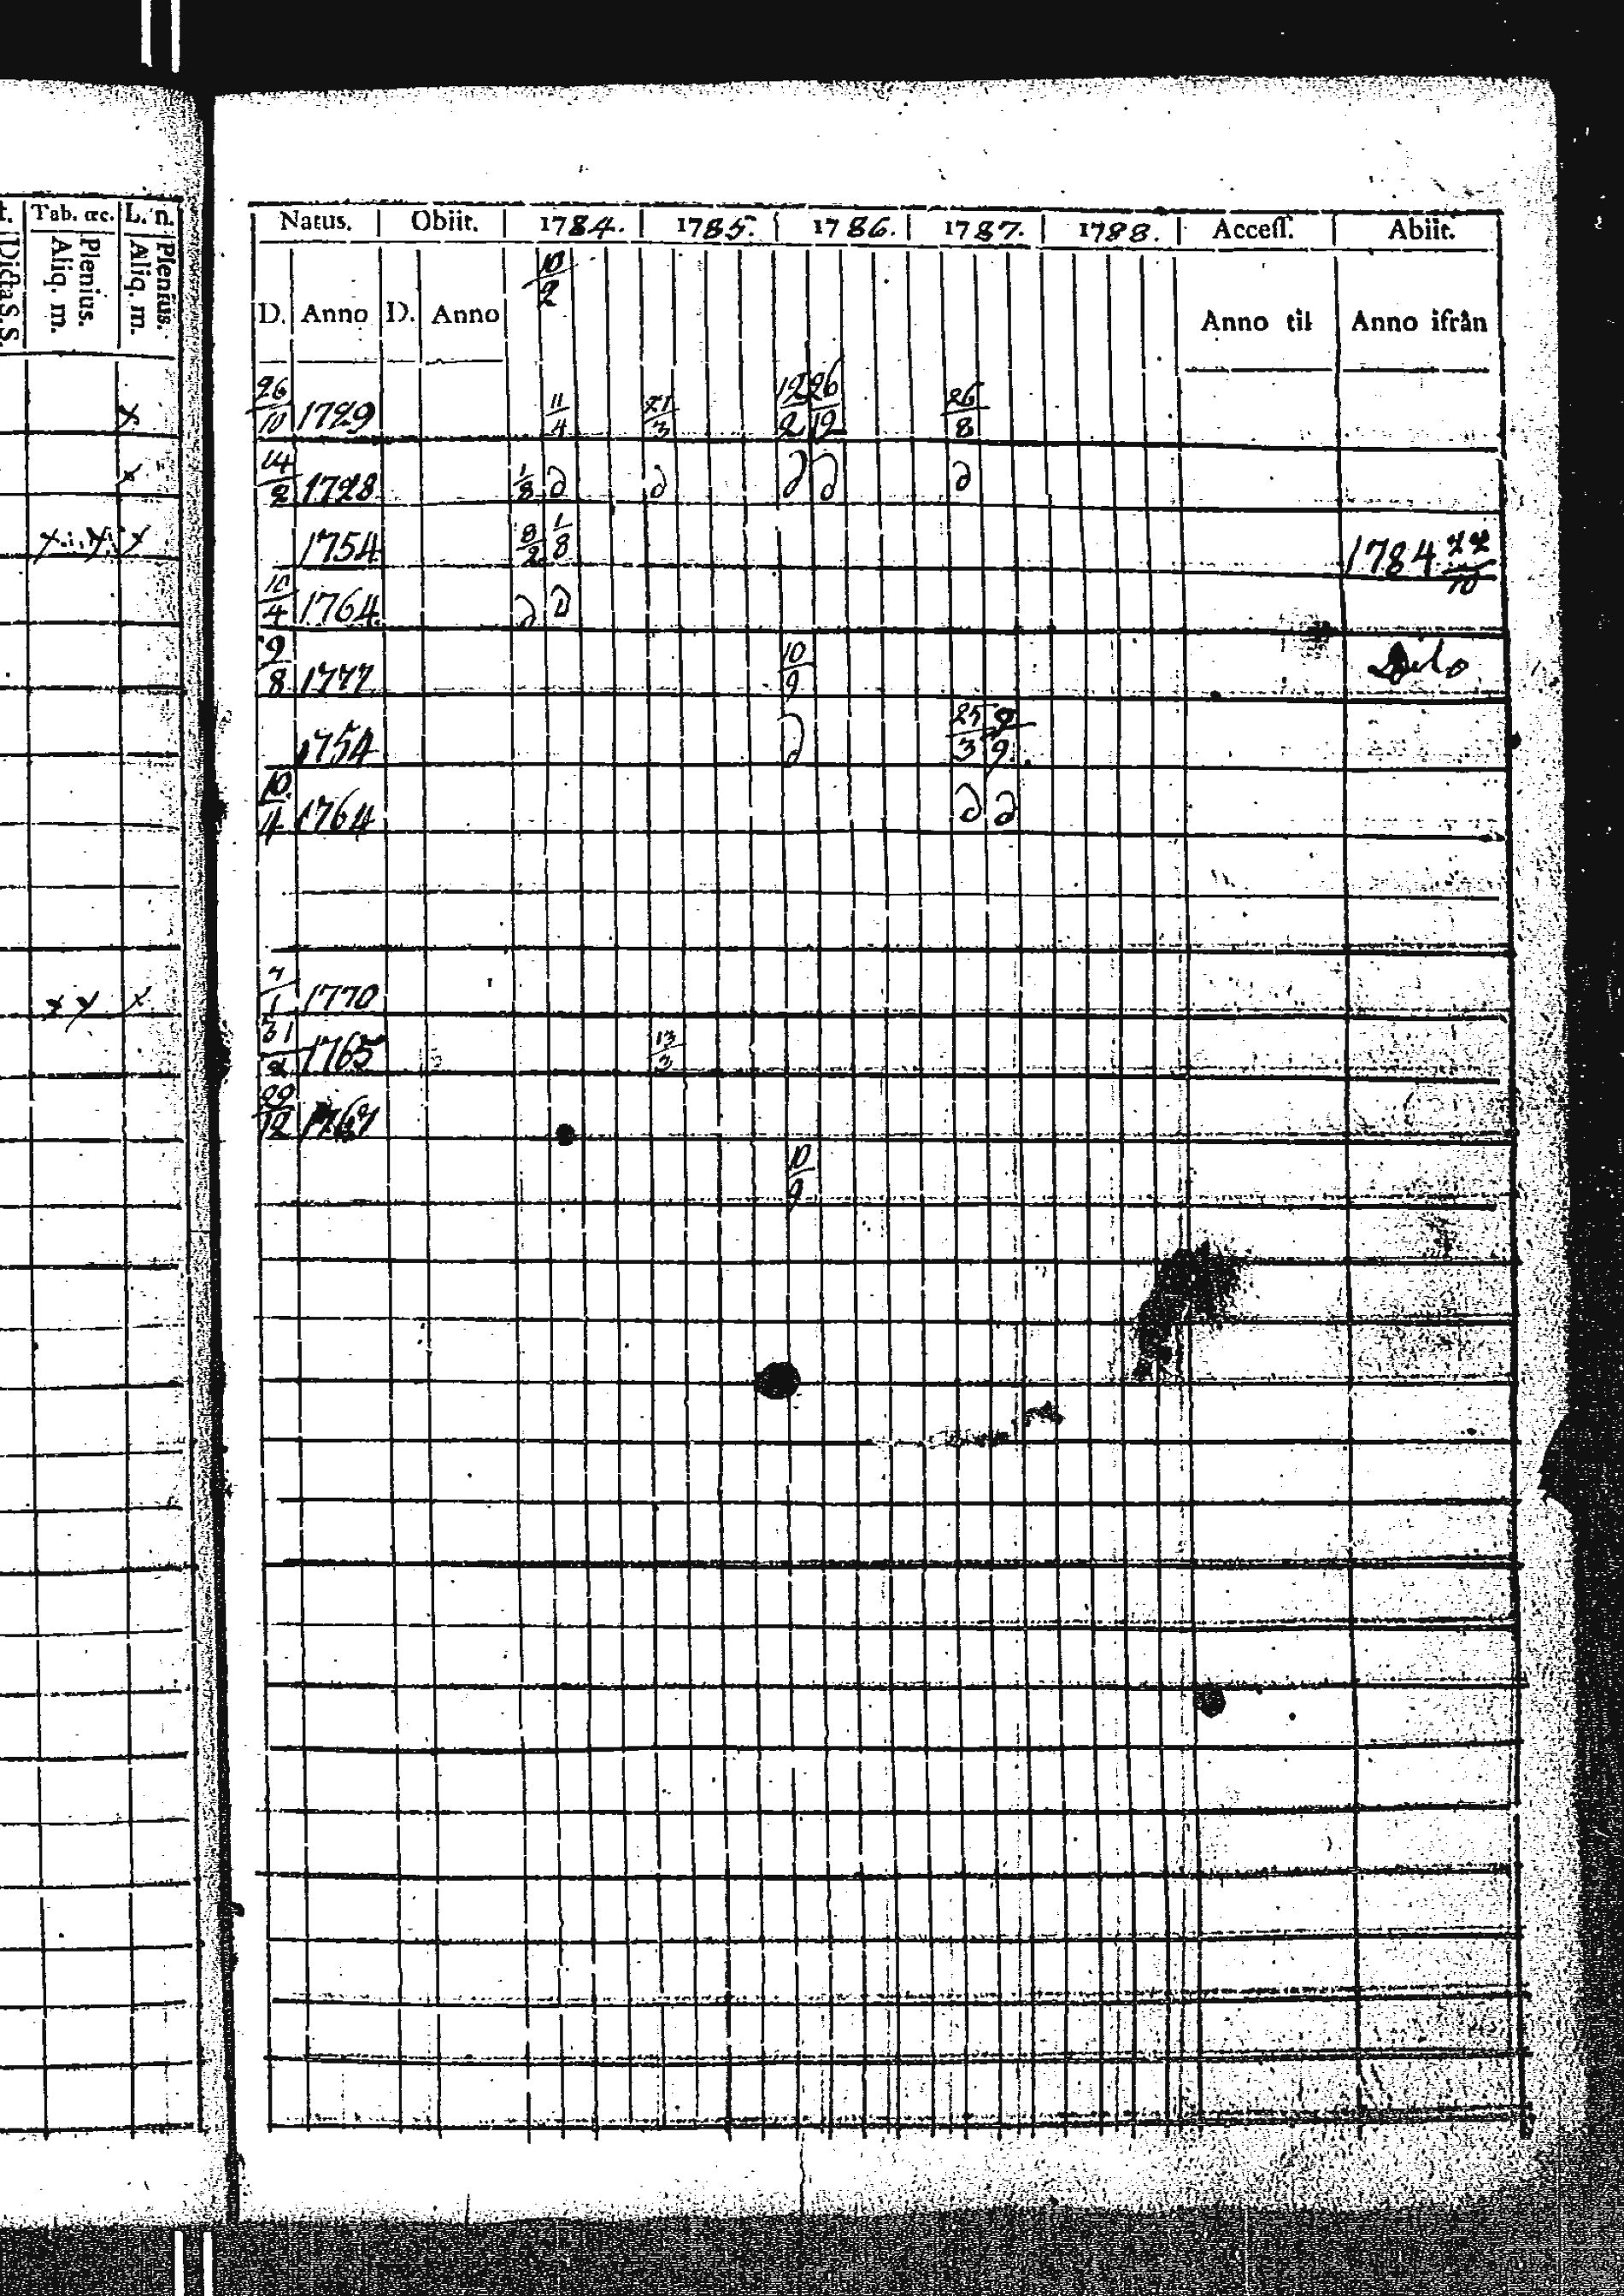 t. Tab. œc. L. n.
Dicta S. S. Plenius. Aliq. m. Plenius. Aliq. m.
Natus. Obiit. 1784. 1785. 1786. 1787. 1788. Access. Abiit.
10/2
D. Anno D. Anno Anno til Anno ifrån
x 26/10 1729 11/4 21/3 12/2 26/12 26/8
x 14/2 1728 1/8 ∂ ∂ ∂ ∂ ∂
x x x 1754 8/2 1/8 1784
10/4 1764 ∂ ∂
2/8 1777 10/9
1754 ∂ 25/3 2/9
10/4 1764 ∂ ∂
x x x 7/1 1770
31/2 1765 13/3
29/12 1767
10/9